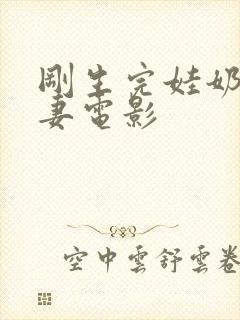 剛生完娃奶
妻電影
空中雲舒雲卷